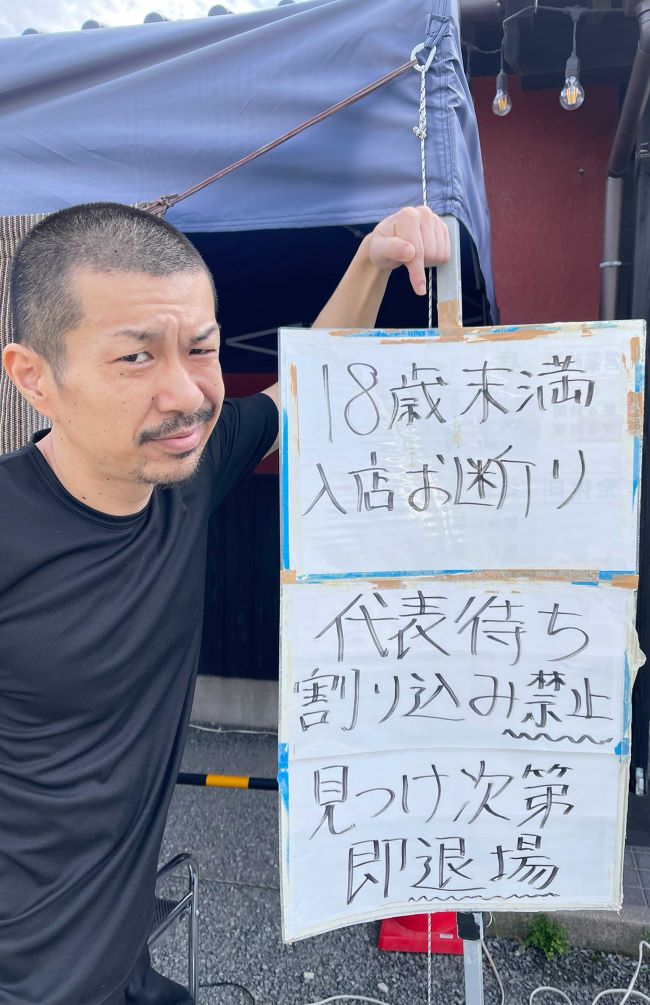 18歳未満
入店お断り
代表待ち
割り込み禁止
見つけ次第
即退場